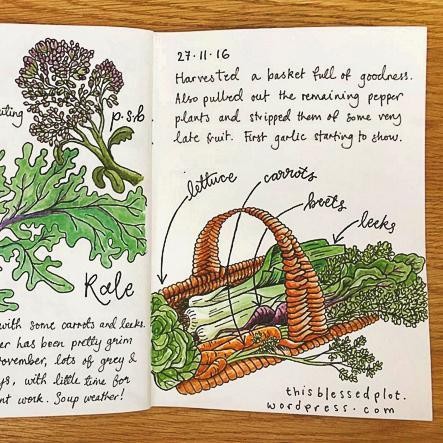 uting
p.s.b.
Kale
with some carrots and leeks.
er has been pretty grim
november, lots of grey &
ys, with little time for
nt work. Soup weather!
27·11·16
Harvested a basket full of goodness.
Also pulled out the remaining pepper
plants and stripped them of some very
late fruit. First garlic starting to show.
lettuce
carrots
beets
leeks
thisblessedplot.
wordpress.com